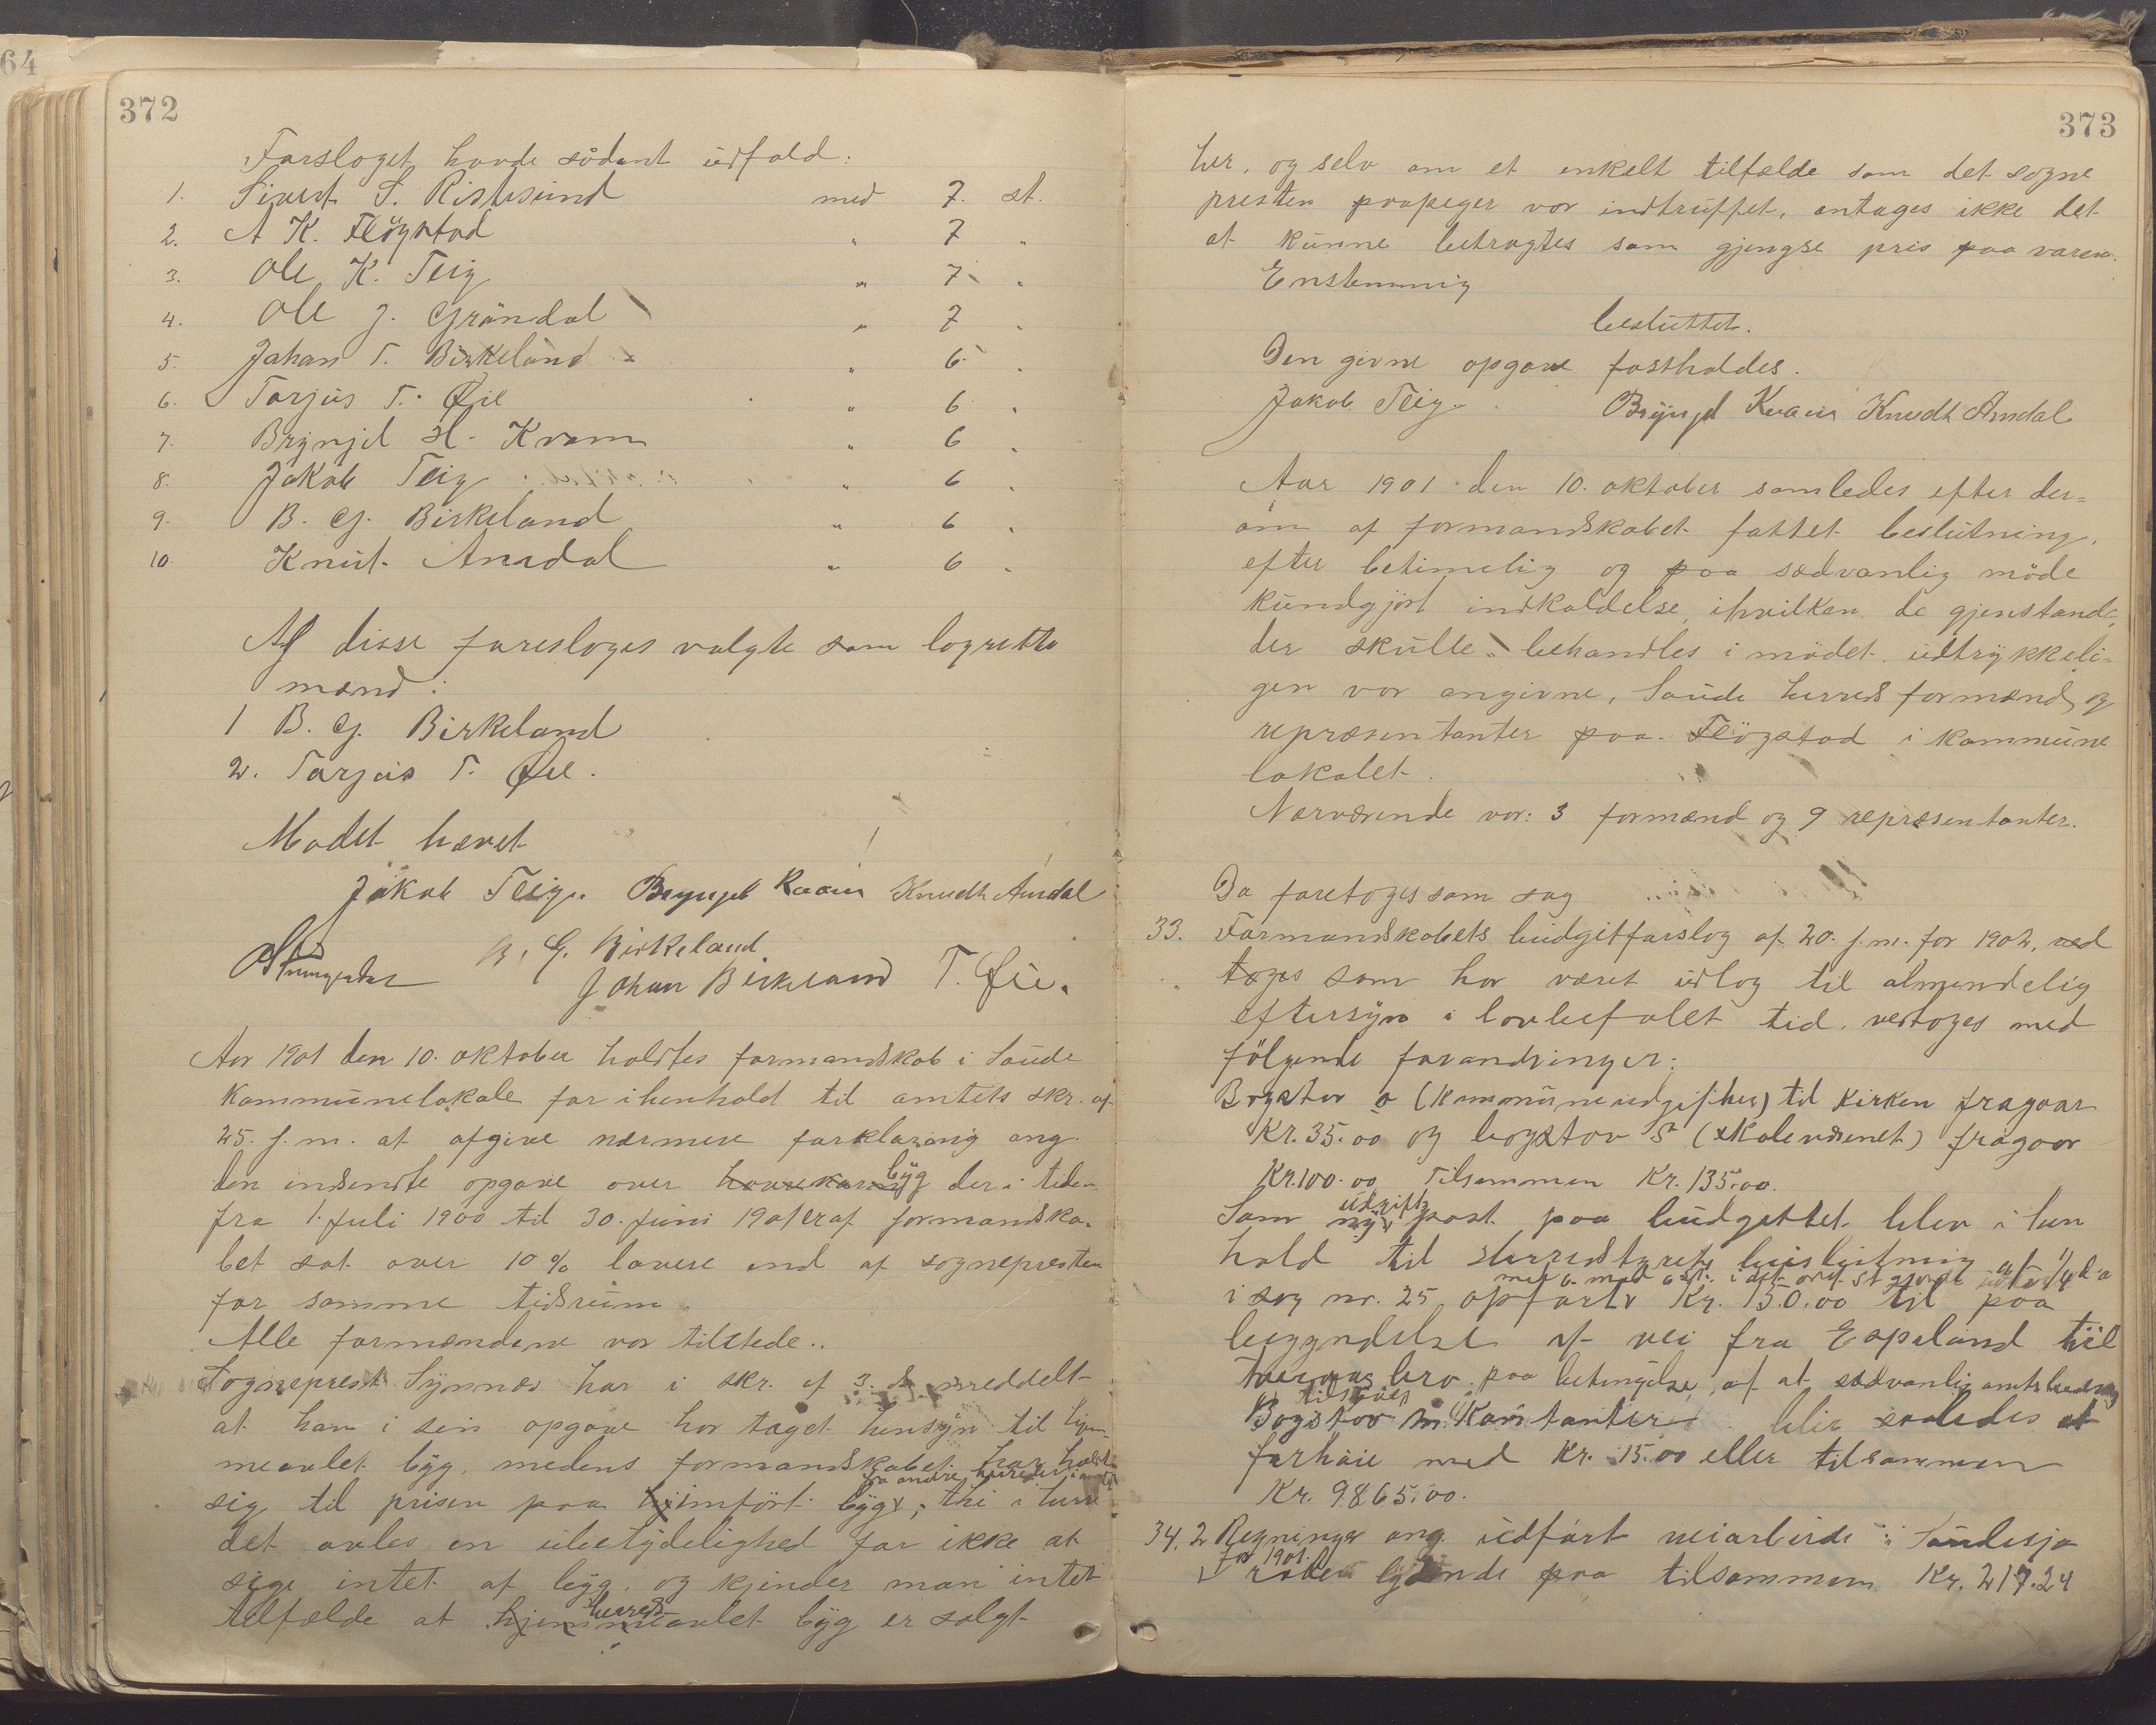 64
372
Forslaget havde sådant udfald:
1. Sivert S. Ristesund med 7. st.
2. A K. Fløgstad " 7 "
3. Ole K. Teig " 7 "
4. Ole J. Gråndal " 7 "
5. Johan T. Birkeland " 6 "
6. Torjus T. Øie " 6 "
7. Brynjel H. Kvam " 6 "
8. Jakob Teig " 6 "
9. B. G. Birkeland " 6 "
10 Knut Amdal " 6 "
Af disse foresloges valgte som lagrette
mænd:
1 B. G. Birkeland
2. Torjus T. Øie.
Mødet hævet
Jakob Teig. Brynjel Kvam Knudt Amdal
B. G. Birkeland
Johan Birkeland T. Øie.
Aar 1901 den 10. oktober holdtes formandskab i Saude
Kommunelokale for ihenhold til amtets skr. af
25. f. m. at afgive nærmere forklaring ang.
den indsendte opgave over havrekorn byg der i tiden
fra 1. Juli 1900 til 30. Juni 1901 er af formandska-
bet sat over 10 % lavere end af sognepresten
for samme tidsrum.
Alle formændene var tilstede..
Sogneprest Synnes har i skr. af 3. ds meddelt
at han i sin opgave har taget hensyn til hjem-
meavlet byg, medens formandskabet har holdt
fra andre herreder i amtet
sig til prisen paa indført byg, thi i herre
det avles en ubetydelighed for ikke at
sige intet af byg, og kjender man intet
herreds
tilfælde at hjemmeavlet byg er solgt
373
her, og selv om et enkelt tilfælde som det sogne
presten paapeger var indtruffet, antages ikke det
at kunne betragtes som gjengse pris paa varen.
Enstemmig
besluttet.
Den givne opgave fastholdes.
Jakob Teig. Brynjel Kvam Knudt Amdal
Aar 1901 den 10. oktober samledes efter der=
om af formandskabet fattet beslutning,
efter betimelig og paa sædvanlig måde
kundgjort indkaldelse, i hvilken de gjenstande,
der skulle behandles i mødet, udtrykkeli=
gen var angivne, Saude herreds formænd og
repræsentanter paa Fløgstad i kommune
lokalet.
Nærværende var: 3 formænd og 9 repræsentanter.
Da foretoges som sag
33. Formandskabets budgetforslag af 20. f. m. for 1902, ved
toges som har været udlag til almindelig
eftersyn i lovbefalet tid, vedtoges med
følgende forandringer:
Bogstav o (Kommuneudgifter) til kirken fragaar
Kr. 35.00 og bogstav S (skolevæsenet) fragaar
Kr. 100.00 Tilsammen Kr. 135.00.
udgifts
Som ny post paa budgettet blev i hen
hold til herredstyrets beslutning af 11/4 d. a
i sag nr. 25 opført Kr. 150.00 til paa
begyndelse af vei fra Espeland til
bro paa betingelse af at sædvanlig amtsbidrag
tilskudt
Bogstav m. Kontanter blir saaledes at
forhøie med Kr. 15.00 eller tilsammen
Kr. 9865.00.
34. 2 Regninger ang. udført veiarbeide i Saudesjø
for 1901
roden lydende paa tilsammen Kr. 217.24